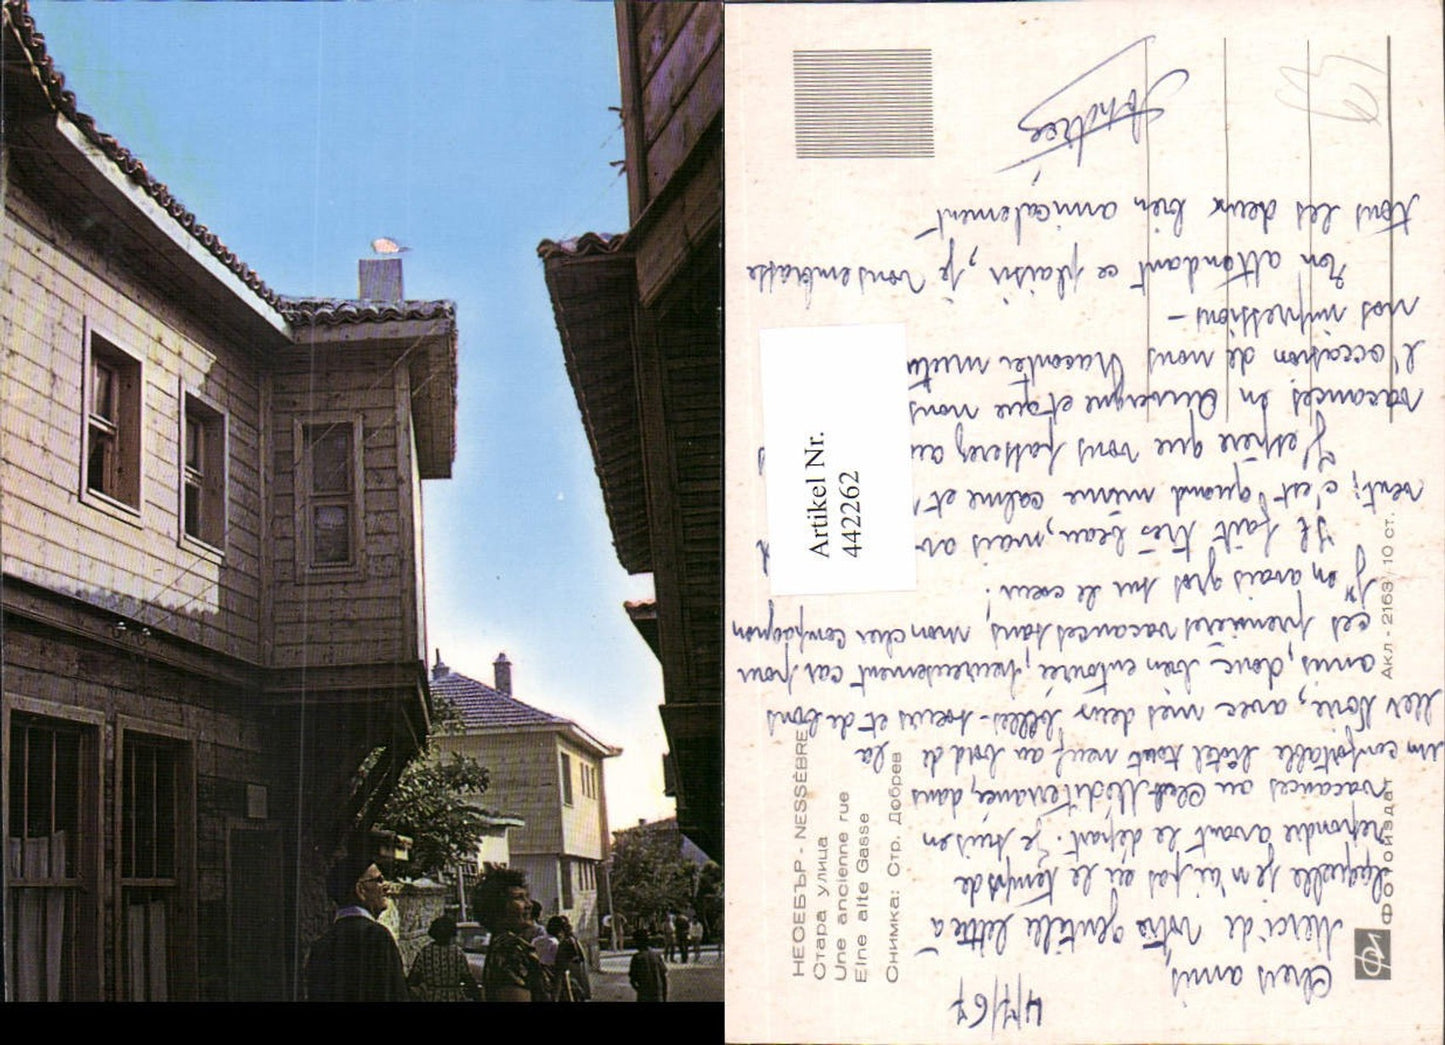 НЕСЕБЪР - NESSÈBRE
Стара улица
Une ancienne rue
Eine alte Gasse
Снимка: Стр. Добрев
ФОТОИЗДАТ
Акл - 2163 / 10 ст.
Artikel Nr.
442262
4/7/67
Chers amis
Merci de votre gentille lettre à
laquelle je n'ai pas eu le temps de
répondre avant le départ. Je suis en
vacances au Club Méditerranée, dans
un confortable hôtel tout neuf, au bord de la
Mer Noire, avec mes deux belles-soeurs et de bons
amis, donc bien entourée, heureusement car pour
ces premières vacances sans mon cher compagnon
j'en avais gros sur le coeur.
Il fait très beau, mais
vent; c'est quand même calme et
J'espère que vous passerez
vacances en Auvergne et que nous
l'occasion de nous raconter
nos impressions -
En attendant ce plaisir, je vous embrasse
tous les deux bien amicalement
Andrée